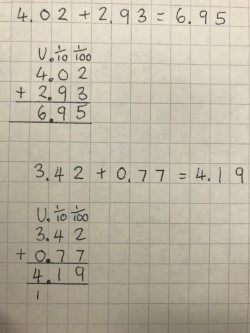 4.02 + 2.93 = 6.95
U. 1/10 1/100
4.02
+ 2.93
6.95
3.42 + 0.77 = 4.19
U. 1/10 1/100
3.42
+ 0.77
4.19
1